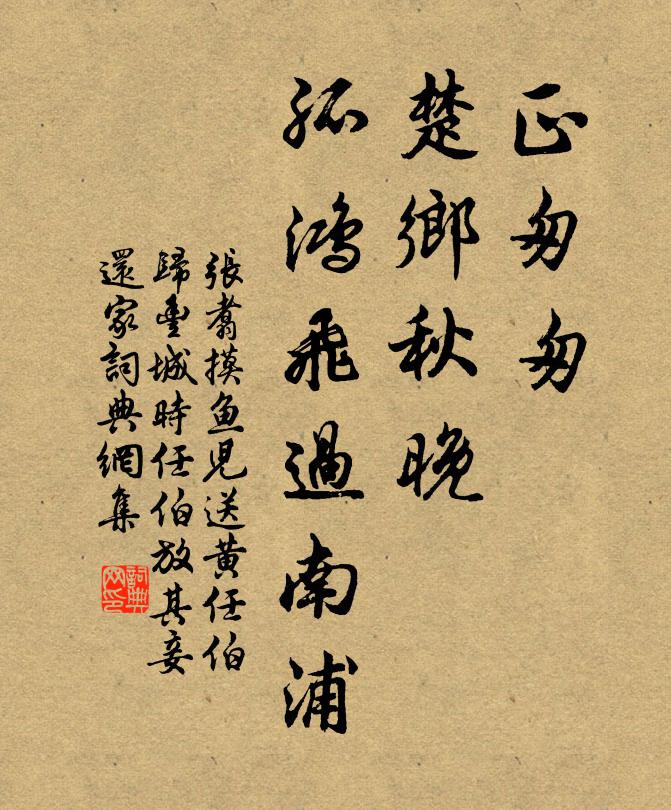 正匆匆
楚鄉秋晚
孤鴻飛過南浦
張翥摸魚兒送黃任伯
歸豐城時任伯放其妾
還家詞典網集
詞典
网印